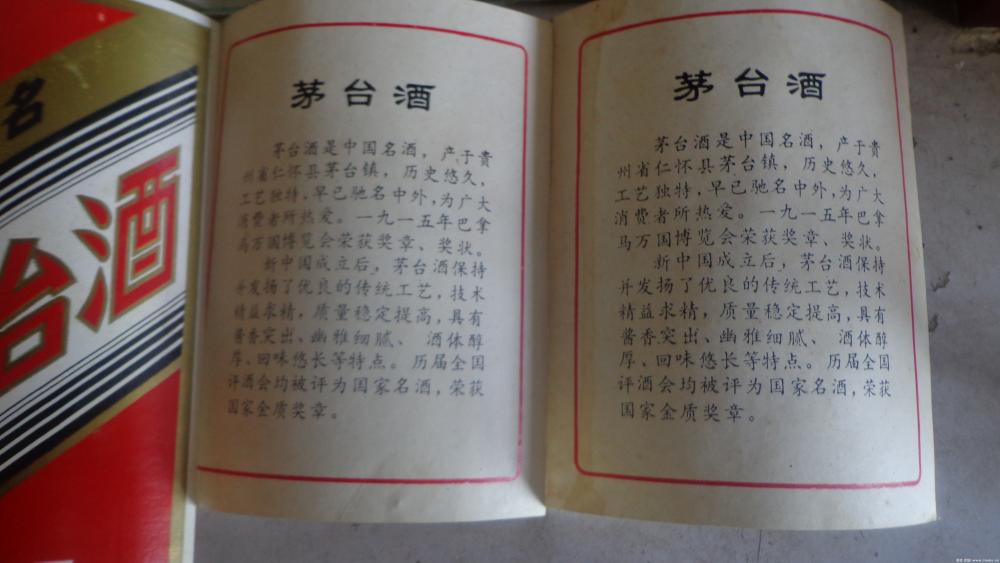 名
台酒
茅台酒
茅台酒是中国名酒，产于贵
州省仁怀县茅台镇，历史悠久，
工艺独特，早已驰名中外，为广大
消费者所热爱。一九一五年巴拿
马万国博览会荣获奖章、奖状。
新中国成立后，茅台酒保持
并发扬了优良的传统工艺，技术
精益求精，质量稳定提高，具有
酱香突出、幽雅细腻、酒体醇
厚、回味悠长等特点。历届全国
评酒会均被评为国家名酒，荣获
国家金质奖章。
茅台酒
茅台酒是中国名酒，产于贵
州省仁怀县茅台镇，历史悠久，
工艺独特，早已驰名中外，为广大
消费者所热爱。一九一五年巴拿
马万国博览会荣获奖章、奖状。
新中国成立后，茅台酒保持
并发扬了优良的传统工艺，技术
精益求精，质量稳定提高，具有
酱香突出、幽雅细腻、酒体醇
厚、回味悠长等特点。历届全国
评酒会均被评为国家名酒，荣获
国家金质奖章。